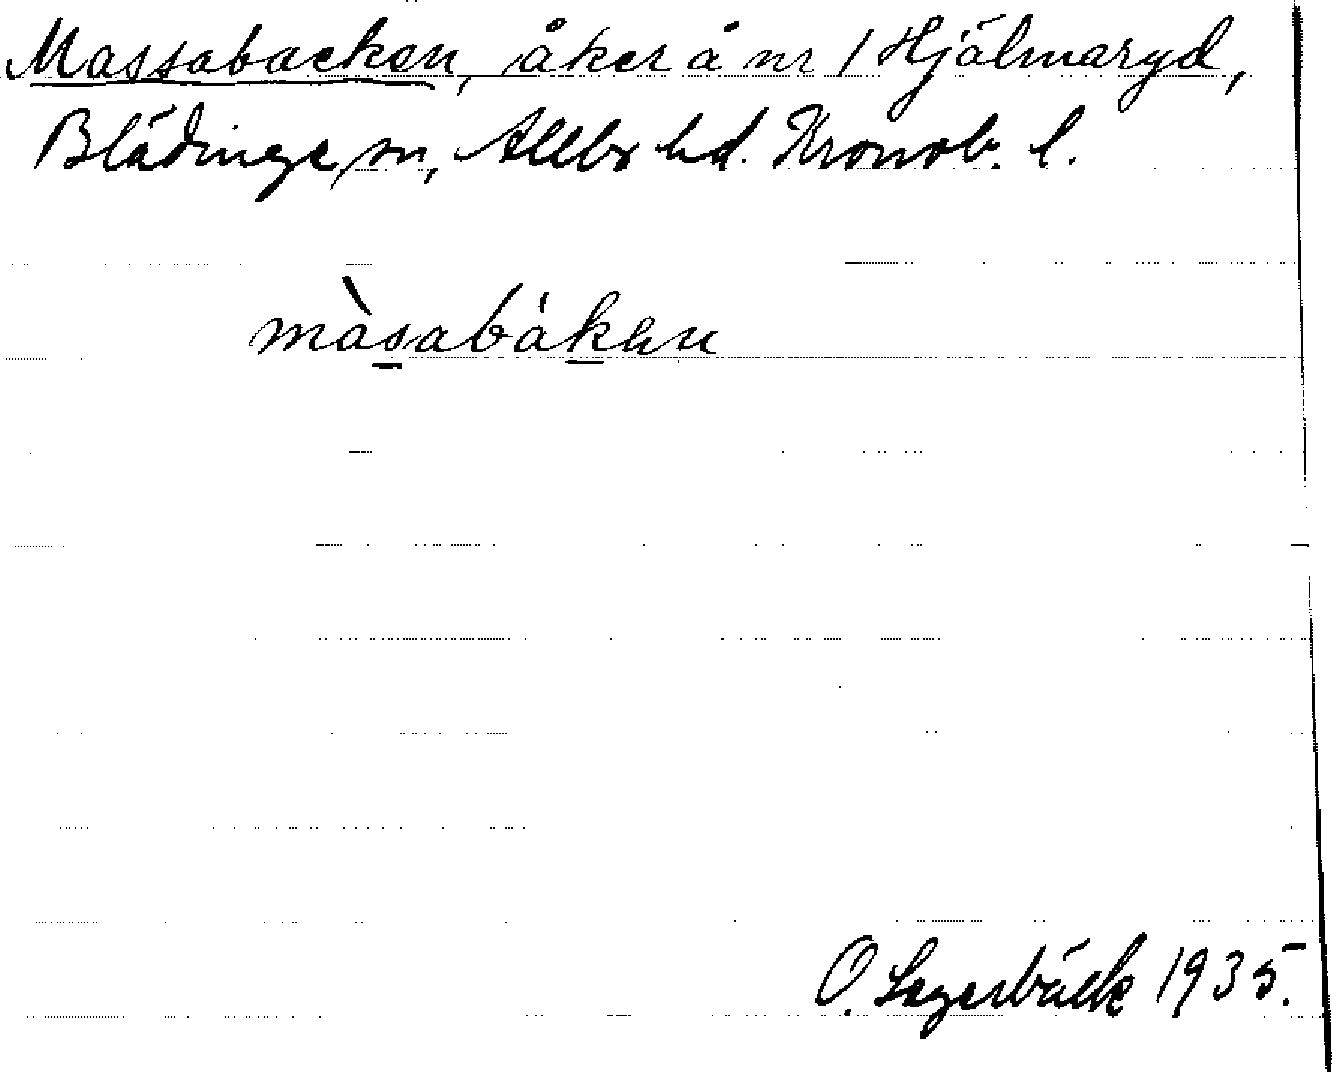 Massabacken, åker å nr 1 Hjälmaryd,
Blädinge sn, Allbo hd. Kronob. l.
màsabákən
O. Lagerbäck 1935.